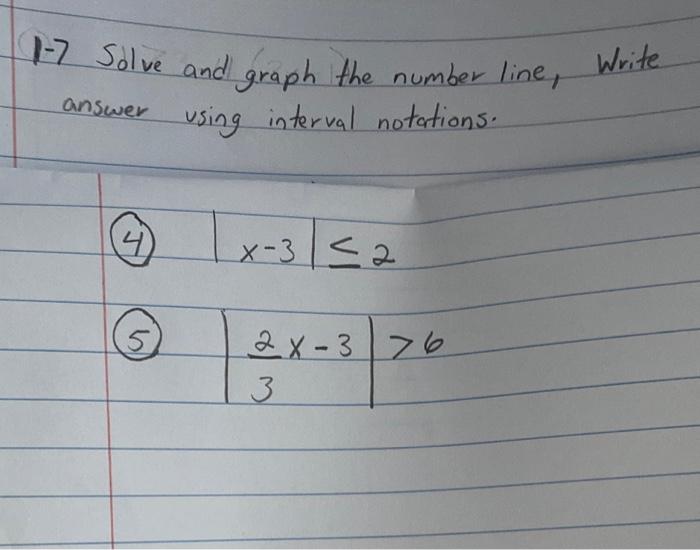 1-7 Solve and graph the number line, Write
answer using interval notations.
④ |x-3| ≤ 2
⑤ |2/3 x - 3| > 6